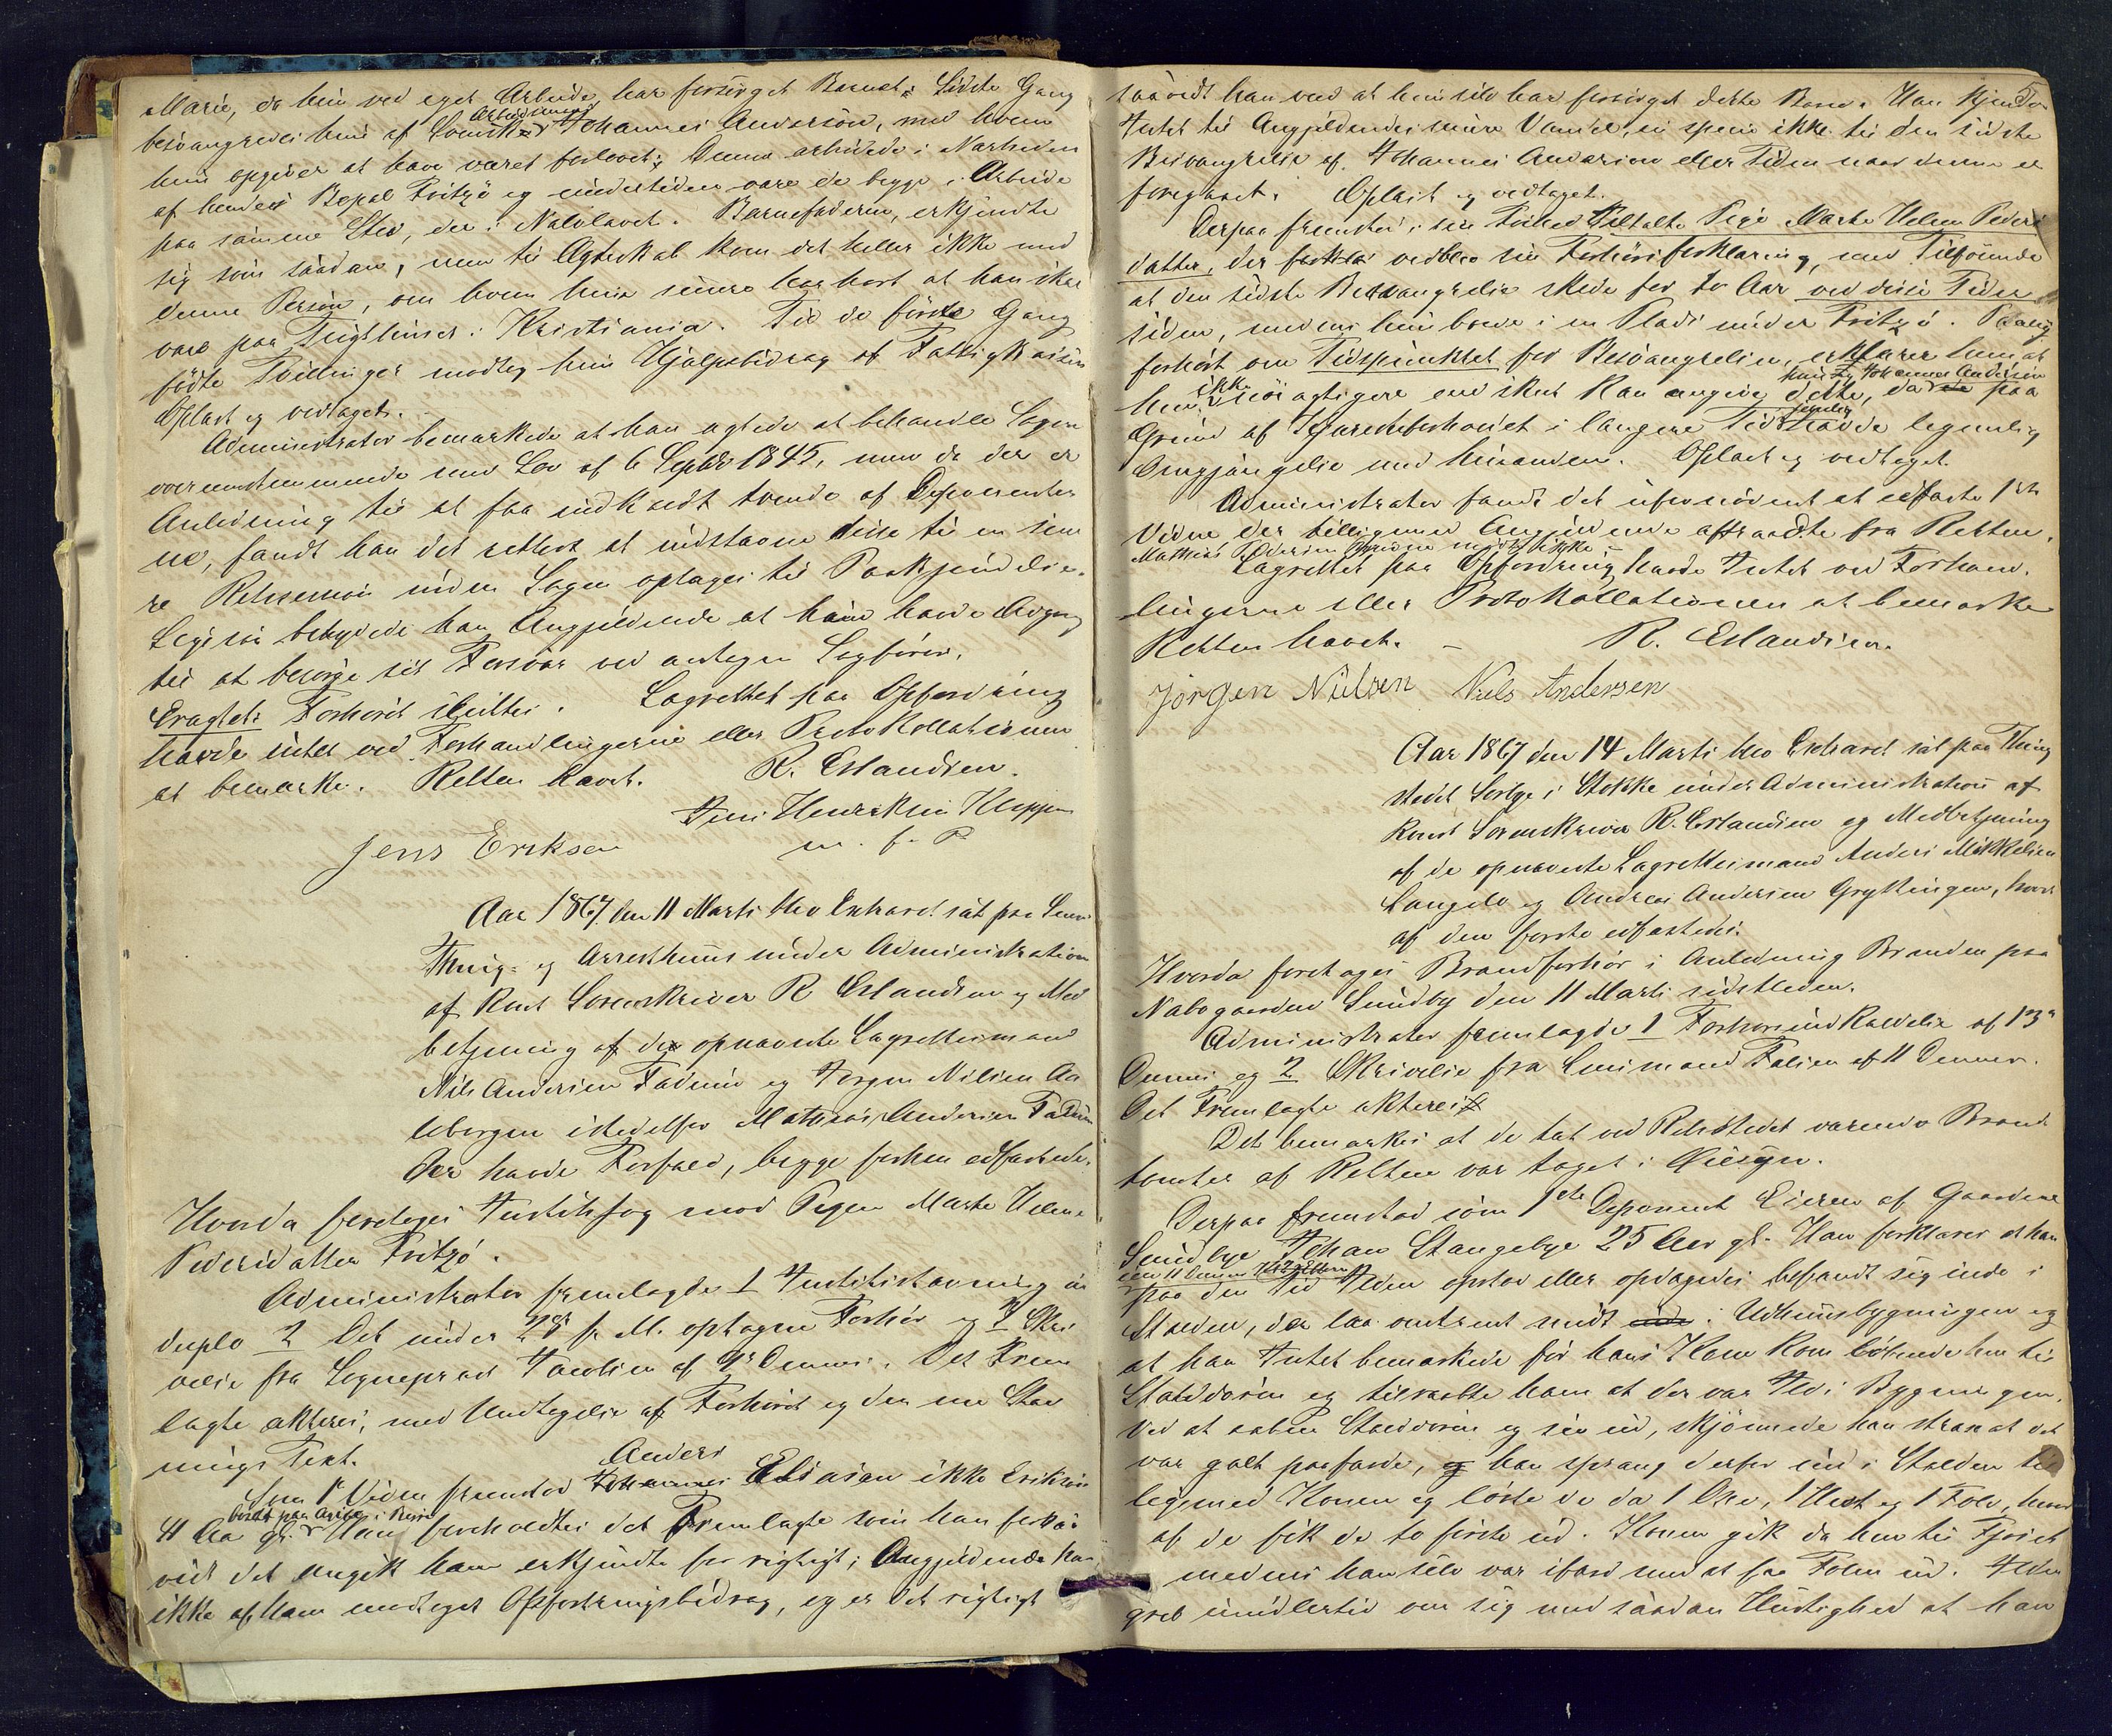 Marie, da hun ved eget Arbeide har forsörget Barnet. Sidste Gang
besvangredes hun af Svensk Arbeidsmand Johannes Andersön, med hvem
hun opgiver at have været forlovet; Denne arbeidede i Nærheden
af hendes Bopæl Fritzö og undertiden vare de begge i Arbeide
paa samme Sted, der i Nabolavet. Barnefaderen, erkjendte
sig som saadan, men til Ægteskab kom det heller ikke med
denne Person, om hvem hun senere har hört at han skal
være paa Tugthuset i Kristiania. Til de förste Gang
födte Tvillinger modtog hun Hjælpebidrag af Fattigkassen
Oplæst og vedtaget.
Administrator bemærkede at han agtede at behandle Sagen
overensstemmende med Lov af 6 Septbr 1845, men da der er
Anledning til at faa indkaldt tvende af Deponenter
ne, fandt han det rettest at indstævne disse til en sene
re Retssession inden Sagen optages til Paakjendelse.
Ligesaa betydede han Angjeldende at hun havde Adgang
til at besörge sit Forsvar ved antagen Sagförer.
Eragtet: Forhöret sluttes. Lagrettet paa Opfordring
havde intet ved Forhandlingerne eller Protokollationen
at bemærke. Retten hævet. R. Erlandsen.
Jens Henriksen Kleppen
Jens Eriksen m. f. P.
Aar 1867 den 11 Marts blev Extraret sat paa
Thing- og Arresthuus under Administration
af Const Sorenskriver R Erlandsen og Med
betjening af de opnævnte Lagrettesmænd
Nils Andersen Fadum og Jörgen Nilsen Aa
lebergen istedetfor Mathias Andersen Fadum
der havde Forfald, begge forhen edfæstede.
Hvorda foretoges Justitssag mod Pigen Marte Helene
Pedersdatter Fritzö.
Administrator fremlagde 1 Justitsstævning in
duplo 2 Det under 28 f. M. optagne Forhör og 3 Skri
velse fra Sogneprest Jacobsen af 9de Dennes. Det Frem
lagte akteres, med Undtagelse af Forhöret og den ene Stæv
nings Text.
Som 1ste Vidne fremstod Anders Eliasen ikke Eriksen
41 Aar gl. Han foreholdtes det Fremlagte som han forsaa
vidt det angik ham erkjendte for rigtigt; Angjeldende har
ikke af ham modtaget Opfostringsbidrag, og er det rigtigt
saavidt han ved at hun selv har forsörget dette Barn. Han kjender
Intet til Angjeldendes senere Vandel, in specie ikke til den sidste
Besvangrelse af Johannes Andersen eller Tiden naar denne er
foregaaet. Oplæst og vedtaget.
Derpaa fremstod i sin Frihed Tiltalte Pige Marte Helene Peders
datter, der vedblev sin Forhörsforklaring, med Tilföiende
at den sidste Besvangrelse skede for to Aar ved disse Tider
siden, medens hun boede i en Plads under Fritzö.
forhört om Tidspunktet for Besvangrelsen, erklærer hun at
hun ikke nöiagtigere end skeet kan angive dette, da hun og Johannes Andersen paa
Grund af Kjæresteforholdet i længere Tid jevnlig havde legemlig
Omgjængelse med hinanden. Oplæst og vedtaget.
Administrator fandt det ufornödent at edfæste 1ste
Vidne der tilligemed Angjeldende aftraadte fra Retten.
Mathias Pedersen
Lagrettet paa Opfordring havde Intet ved Forhand
lingerne eller Protokollationen at bemærke
Retten hævet. – R. Erlandsen.
Jörgen Nilsen Niels Andersen
Aar 1867 den 14 Marts blev Extraret sat paa Thing
stedet Sörbye i Stokke under Administration af
Const Sorenskriver R. Erlandsen og Medbetjening
af de opnævnte Lagrettesmænd Anders Mikkelsen
Langelo og Andreas Andersen Gryttingen, hvor
af den förste edfæstedes.
Hvorda foretoges Brandforhör i Anledning Branden paa
Nabogaarden Sundby den 11 Marts sidstleden.
Administrator fremlagde 1 Forhörsindkaldelse af 13de
Dennes og 2 Skrivelse fra Lensmand Falsen af 11 Dennes.
Det Fremlagte akteres
Det bemærkes at de tæt ved Retsstedet værende Brand
tomter af Retten var taget i Öiesyn.
Derpaa fremstod som 1ste Deponent Eieren af Gaarden
Sundbye Johan Stangebye 25 Aar gl. Han forklarer at han
paa den Tid Ilden opstod eller opdagedes befandt sig inde i
Stalden, der laa omtrent midt i Udhuusbygningen og
at han Intet bemærkede för hans Kone kom löbende hen til
Stalddören og tilraabte ham at der var Ild i Bygningen.
Ved at aabne Stalddören og see ud, skjönnede han strax at det
var galt paafærde, han sprang derfor ind i Stalden til
ligemed Konen og löste de da 1 Oxe, 1 Hest og 1 Fole, hvor
af de fik de to förste ud. Konen gik da hen til Fjöset
medens han selv var ifærd med at faa Folen ud. Ilden
greb imidlertid om sig med saadan Hurtighed at han